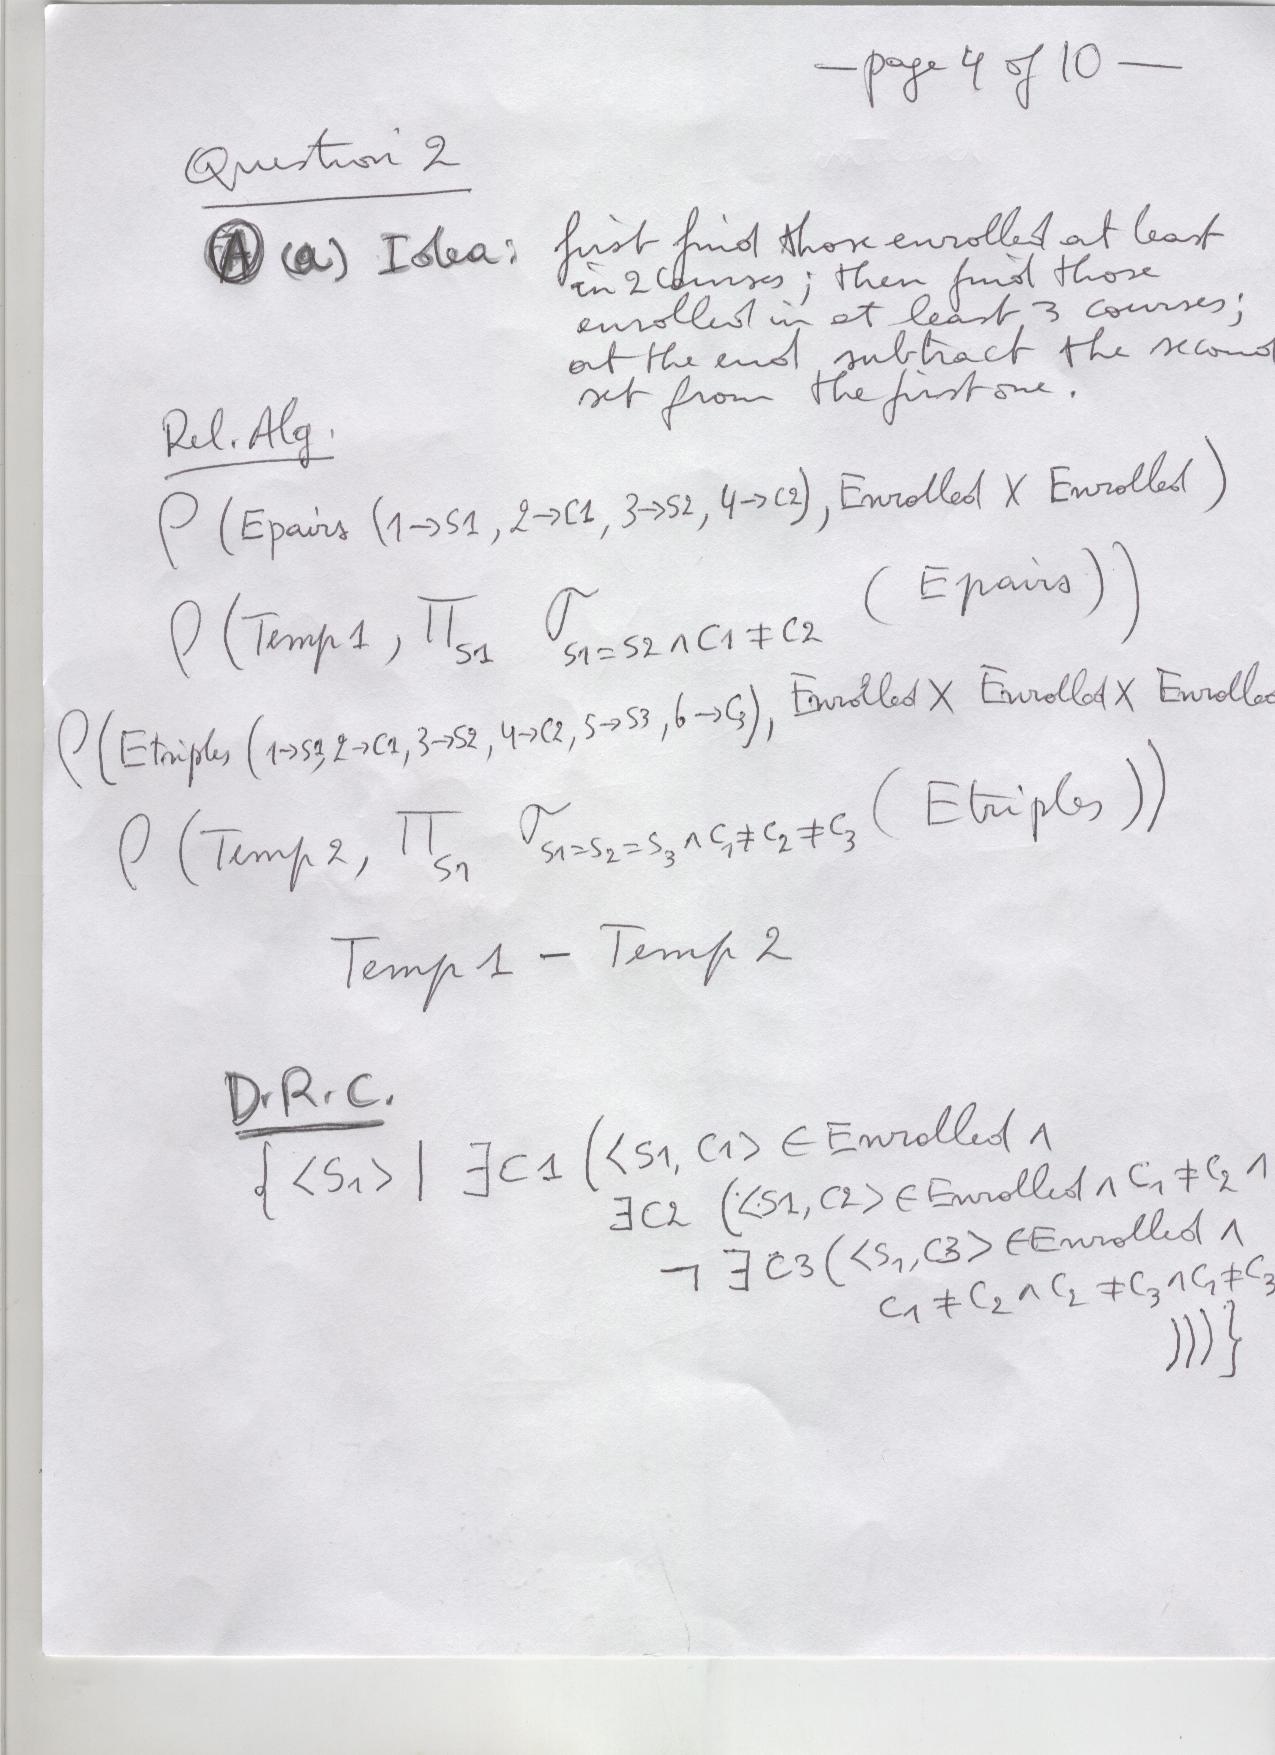 — page 4 of 10 —
Question 2
A (a) Idea: first find those enrolled at least
in 2 courses; then find those
enrolled in at least 3 courses;
at the end subtract the second
set from the first one.
Rel. Alg.
ρ (Epairs (1→S1, 2→C1, 3→S2, 4→C2), Enrolled X Enrolled)
ρ (Temp1, π S1 σ S1=S2 ∧ C1≠C2 (Epairs))
ρ (Etriples (1→S1, 2→C1, 3→S2, 4→C2, 5→S3, 6→C3), Enrolled X Enrolled X Enrolled
ρ (Temp2, π S1 σ S1=S2=S3 ∧ C1≠C2≠C3 (Etriples))
Temp1 – Temp2
D.R.C.
{<S1> | ∃C1 (<S1, C1> ∈ Enrolled ∧
∃C2 (<S1, C2> ∈ Enrolled ∧ C1≠C2 ∧
¬∃C3 (<S1, C3> ∈ Enrolled ∧
C1≠C2 ∧ C2≠C3 ∧ C1≠C3
)))}